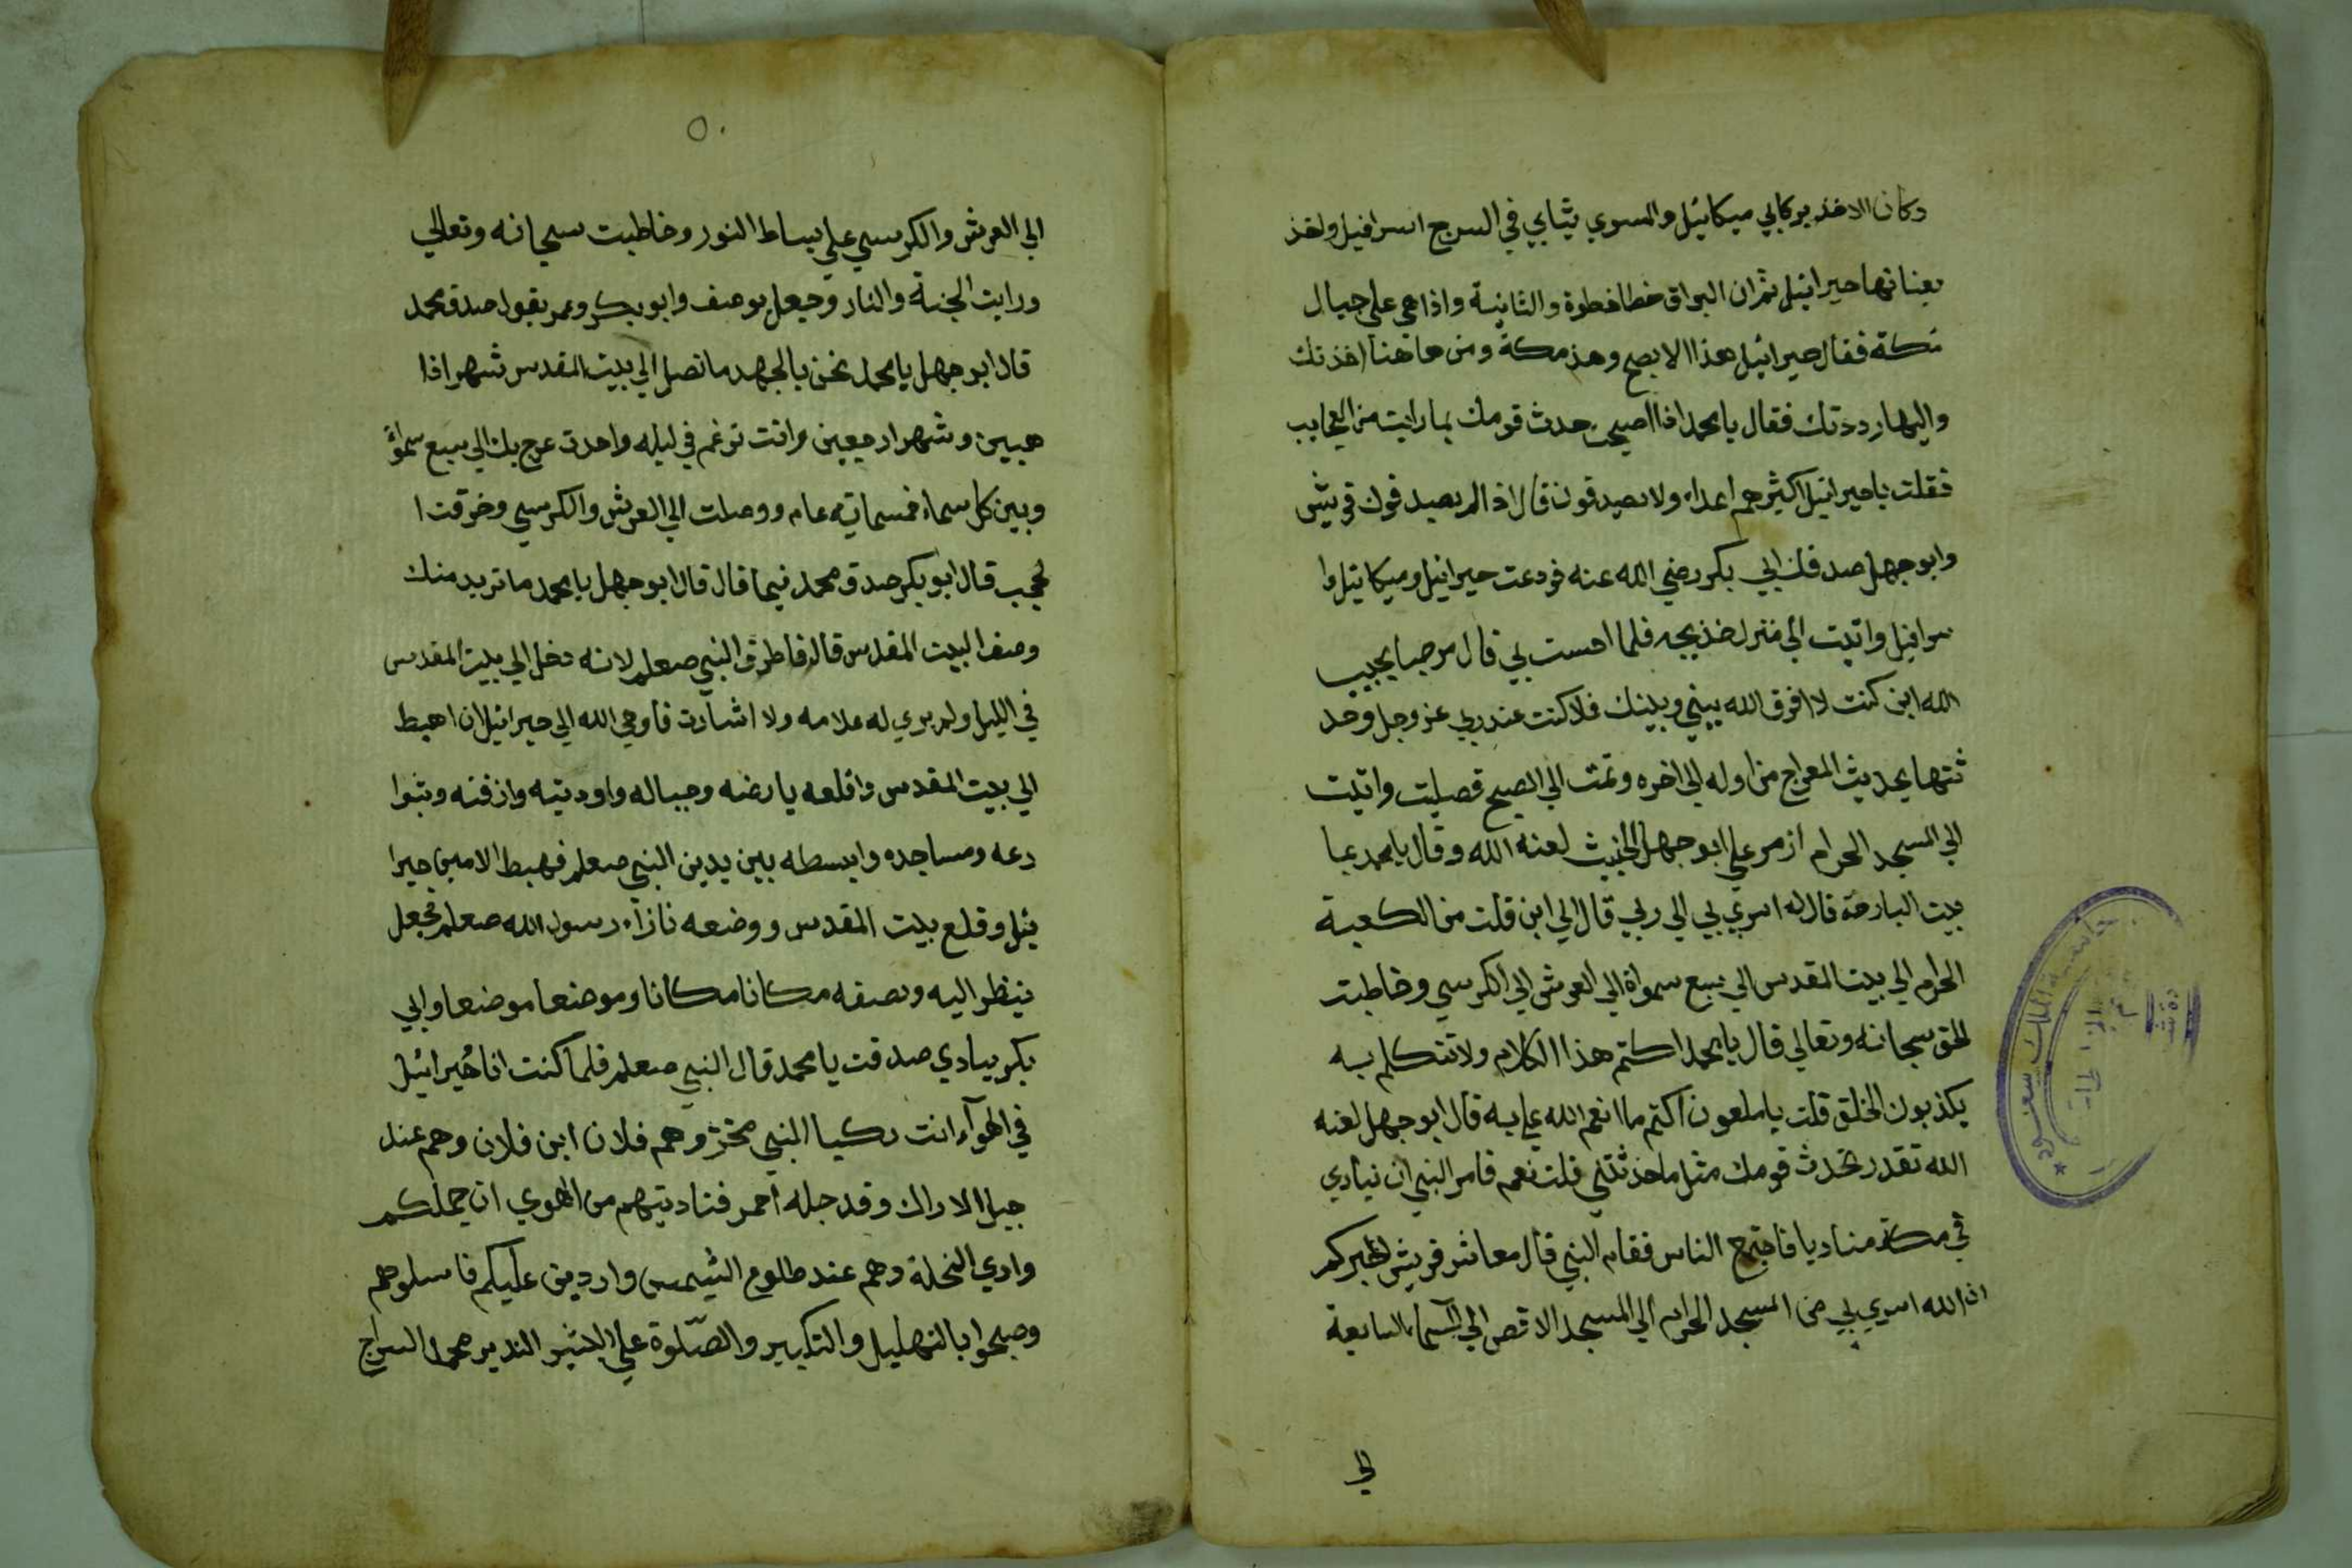 وكان الاخذ بركابي ميكائيل والمسوي ثيابي في السرج اسرافيل واخذ
بعنانها جبرائيل ثم ان البراق خطا خطوة والثانية واذا هي علي جبال
مكة فقال جبرائيل هذا الابطح وهذ مكة ومن هاهنا اخذتك
واليها رددتك فقال يا محمد اذا اصبحت حدث قومك بما رايت من العجايب
فقلت يا جبرائيل اكثرهم اعداء ولا يصدقون قال اذا لم يصدقوك قريش
وابو جهل صدقك ابي بكر رضي الله عنه فودعت جبرائيل وميكائيل وا
سرافيل واتيت الي منزل خديجه فلما احست بي قال مرحبا بحبيب
الله اين كنت لا افرق الله بيني وبينك فلا كنت عند ربي عز وجل وحد
ثتها بحديث المعراج من اوله الي اخره ونمت الي الصبح فصليت واتيت
الي المسجد الحرام از مر علي ابو جهل الخبيث لعنه الله وقال يا محمد بما
بيت البارحة قال له اسري بي الي ربي قال الي اين قلت من الكعبة
الحرام الي بيت المقدس الي سبع سمواة الي العرش الي الكرسي وخاطبت
الحق سبحانه وتعالي قال يا محمد اكتم هذا الكلام ولا تتكلم به
يكذبون الخلق قلت يا ملعون اكتم ما انعم الله علي به قال ابو جهل لعنه
الله تقدر تحدث قومك مثل ما حدثتني قلت نعم فامر النبي ان ينادي
في مكة مناديا فاجتمع الناس فقام النبي قال معاشر قريش اخبركم
ان الله اسري بي من المسجد الحرام الي المسجد الاقصي الي السماء السابعة
الي
٥٠
الي العرش والكرسي علي بساط النور وخاطبت سبحانه وتعالي
ورايت الجنة والنار وجعل يوصف وابو بكر وعمر يقول صدق محمد
قال ابو جهل يا محمد نحن بالجهد ما نصل الي بيت المقدس شهرا ذا
هبين وشهرا رجعين وانت تزعم في ليله واحدت عرج بك الي سبع سموات
وبين كل سماء خمسماية عام ووصلت الي العرش والكرسي وخرقت ا
لحجب قال ابو بكر صدق محمد فيما قال قال ابو جهل يا محمد ما نريد منك
وصف البيت المقدس قال فاطرق النبي صعلم لانه دخل الي بيت المقدس
في الليل ولم يري له علامه ولا اشارت فاوحي الله الي جبرائيل ان اهبط
الي بيت المقدس واقلعه بارضه وجباله واوديته وازقته وشوا
رعه ومساجده وابسطه بين يدين النبي صعلم فهبط الامين جبرا
ئيل وقلع بيت المقدس ووضعه بازاء رسول الله صعلم فجعل
ينظر اليه ويصفه مكانا مكانا وموضعا موضعا وابي
بكر ينادي صدقت يا محمد قال النبي صعلم فلما كنت انا جبرائيل
في الهوآء انت ركبا النبي وهم فلان ابن فلان وهم عند
جبل الاراك وقد جله احمر فناديتهم من الهوي ان جملكم
وادي النخلة وهم عند طلوع الشمس واردين عليكم فاسلوهم
وصبحوا بالتهليل والتكبير والصلوة علي البشير النذير محمد السراج